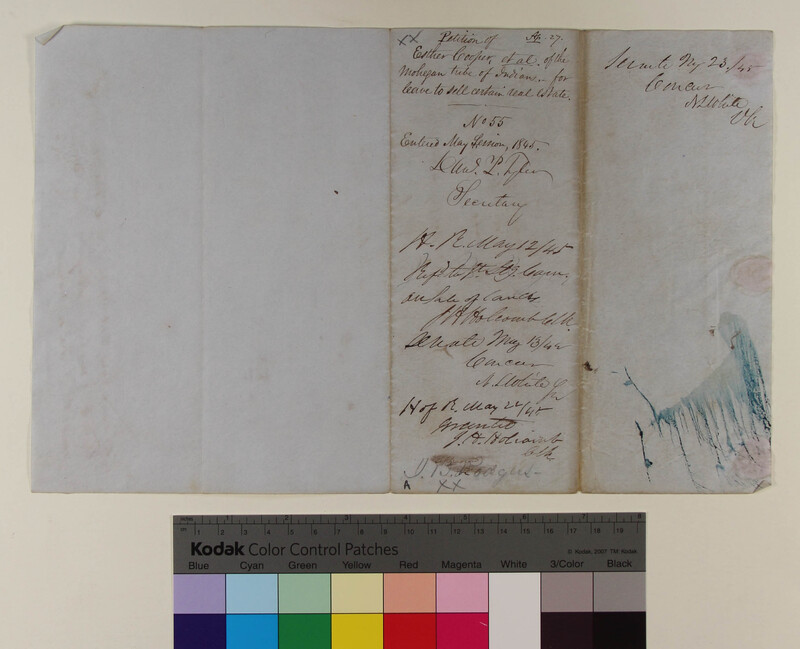 xx Petition of Ap. 27.
Esther Cooper, et al. of the
Mohegan tribe of Indians - for
leave to sell certain real Estate.
No 55
Entered May Session, 1845.
Danl. P. Tyler
Secretary
H. R. May 12/45
Refd to Jt. Comy
on Sale of Lands
J H Holcomb Clk.
Senate May 13/45
Concur
N. White Clk
H of R. May 22/45
Granted
J. H. Holcomb
Clk
J. B. Rodgers -
A xx
Senate May 23,/45
Concur
N White
Clk
inches 1 2 3 4 5 6 7 8
cm 1 2 3 4 5 6 7 8 9 10 11 12 13 14 15 16 17 18 19
Kodak Color Control Patches
© Kodak, 2007 TM: Kodak
Blue Cyan Green Yellow Red Magenta White 3/Color Black